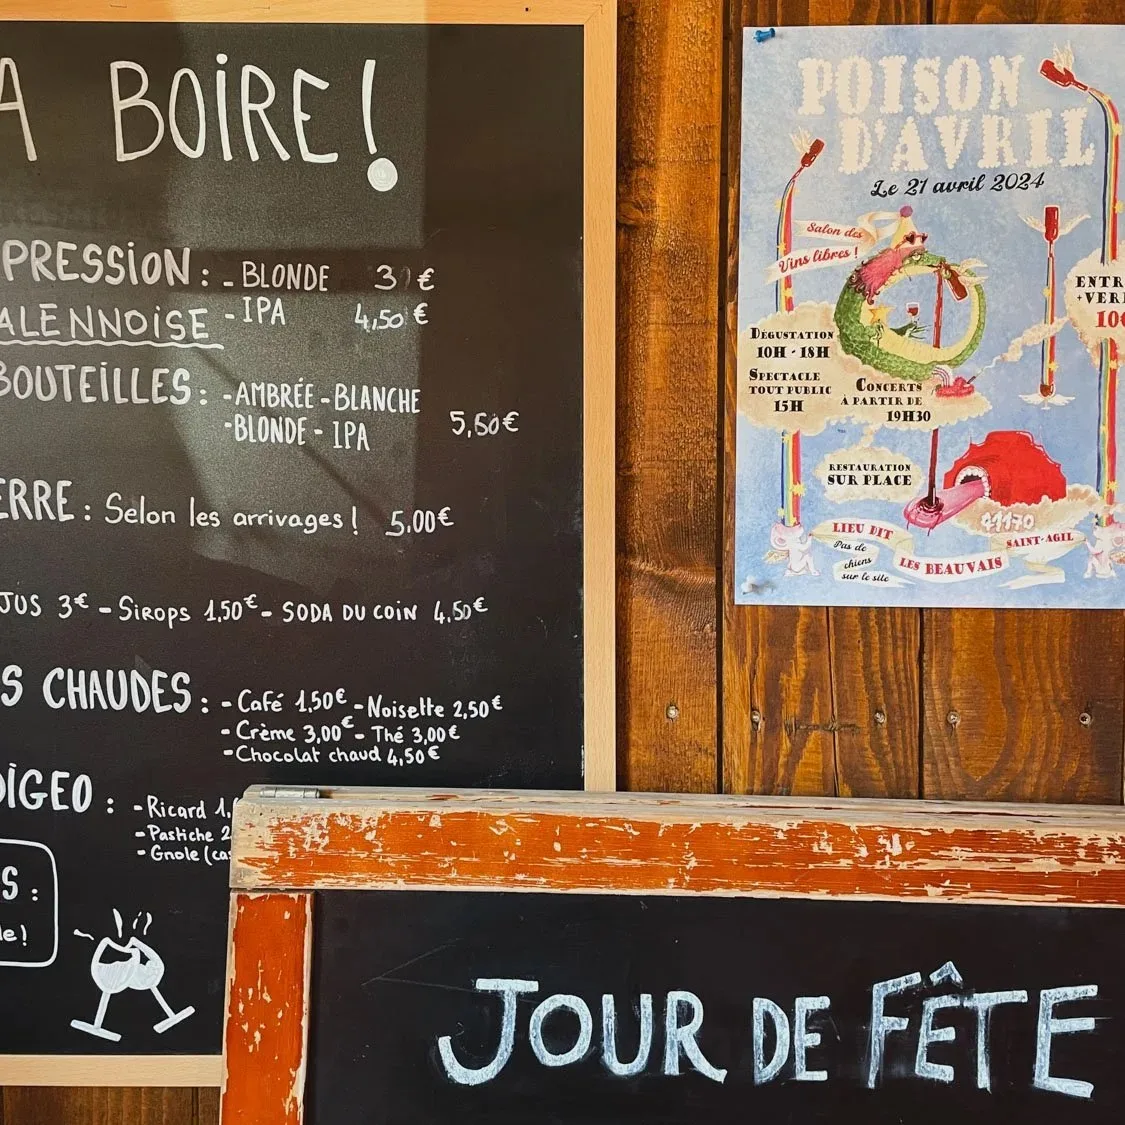 A BOIRE !
PRESSION : - BLONDE 3 €
ALENNOISE - IPA 4,50 €
BOUTEILLES : - AMBRÉE - BLANCHE
- BLONDE - IPA 5,50€
ERRE : Selon les arrivages ! 5,00€
JUS 3€ - Sirops 1,50€ - SODA DU COIN 4,50€
S CHAUDES : - Café 1,50€ - Noisette 2,50€
- Crème 3,00€ - Thé 3,00€
- Chocolat chaud 4,50€
DIGEO : - Ricard 1,
- Pastiche 2
- Gnole (ca
S :
le !
POISON
D'AVRIL
Le 21 avril 2024
Salon des
Vins libres !
ENTR
+ VER
10€
DÉGUSTATION
10H - 18H
SPECTACLE
TOUT PUBLIC
15H
CONCERTS
À PARTIR DE
19H30
RESTAURATION
SUR PLACE
41170
SAINT-AGIL
LIEU DIT
LES BEAUVAIS
Pas de
chiens
sur le site
JOUR DE FÊTE